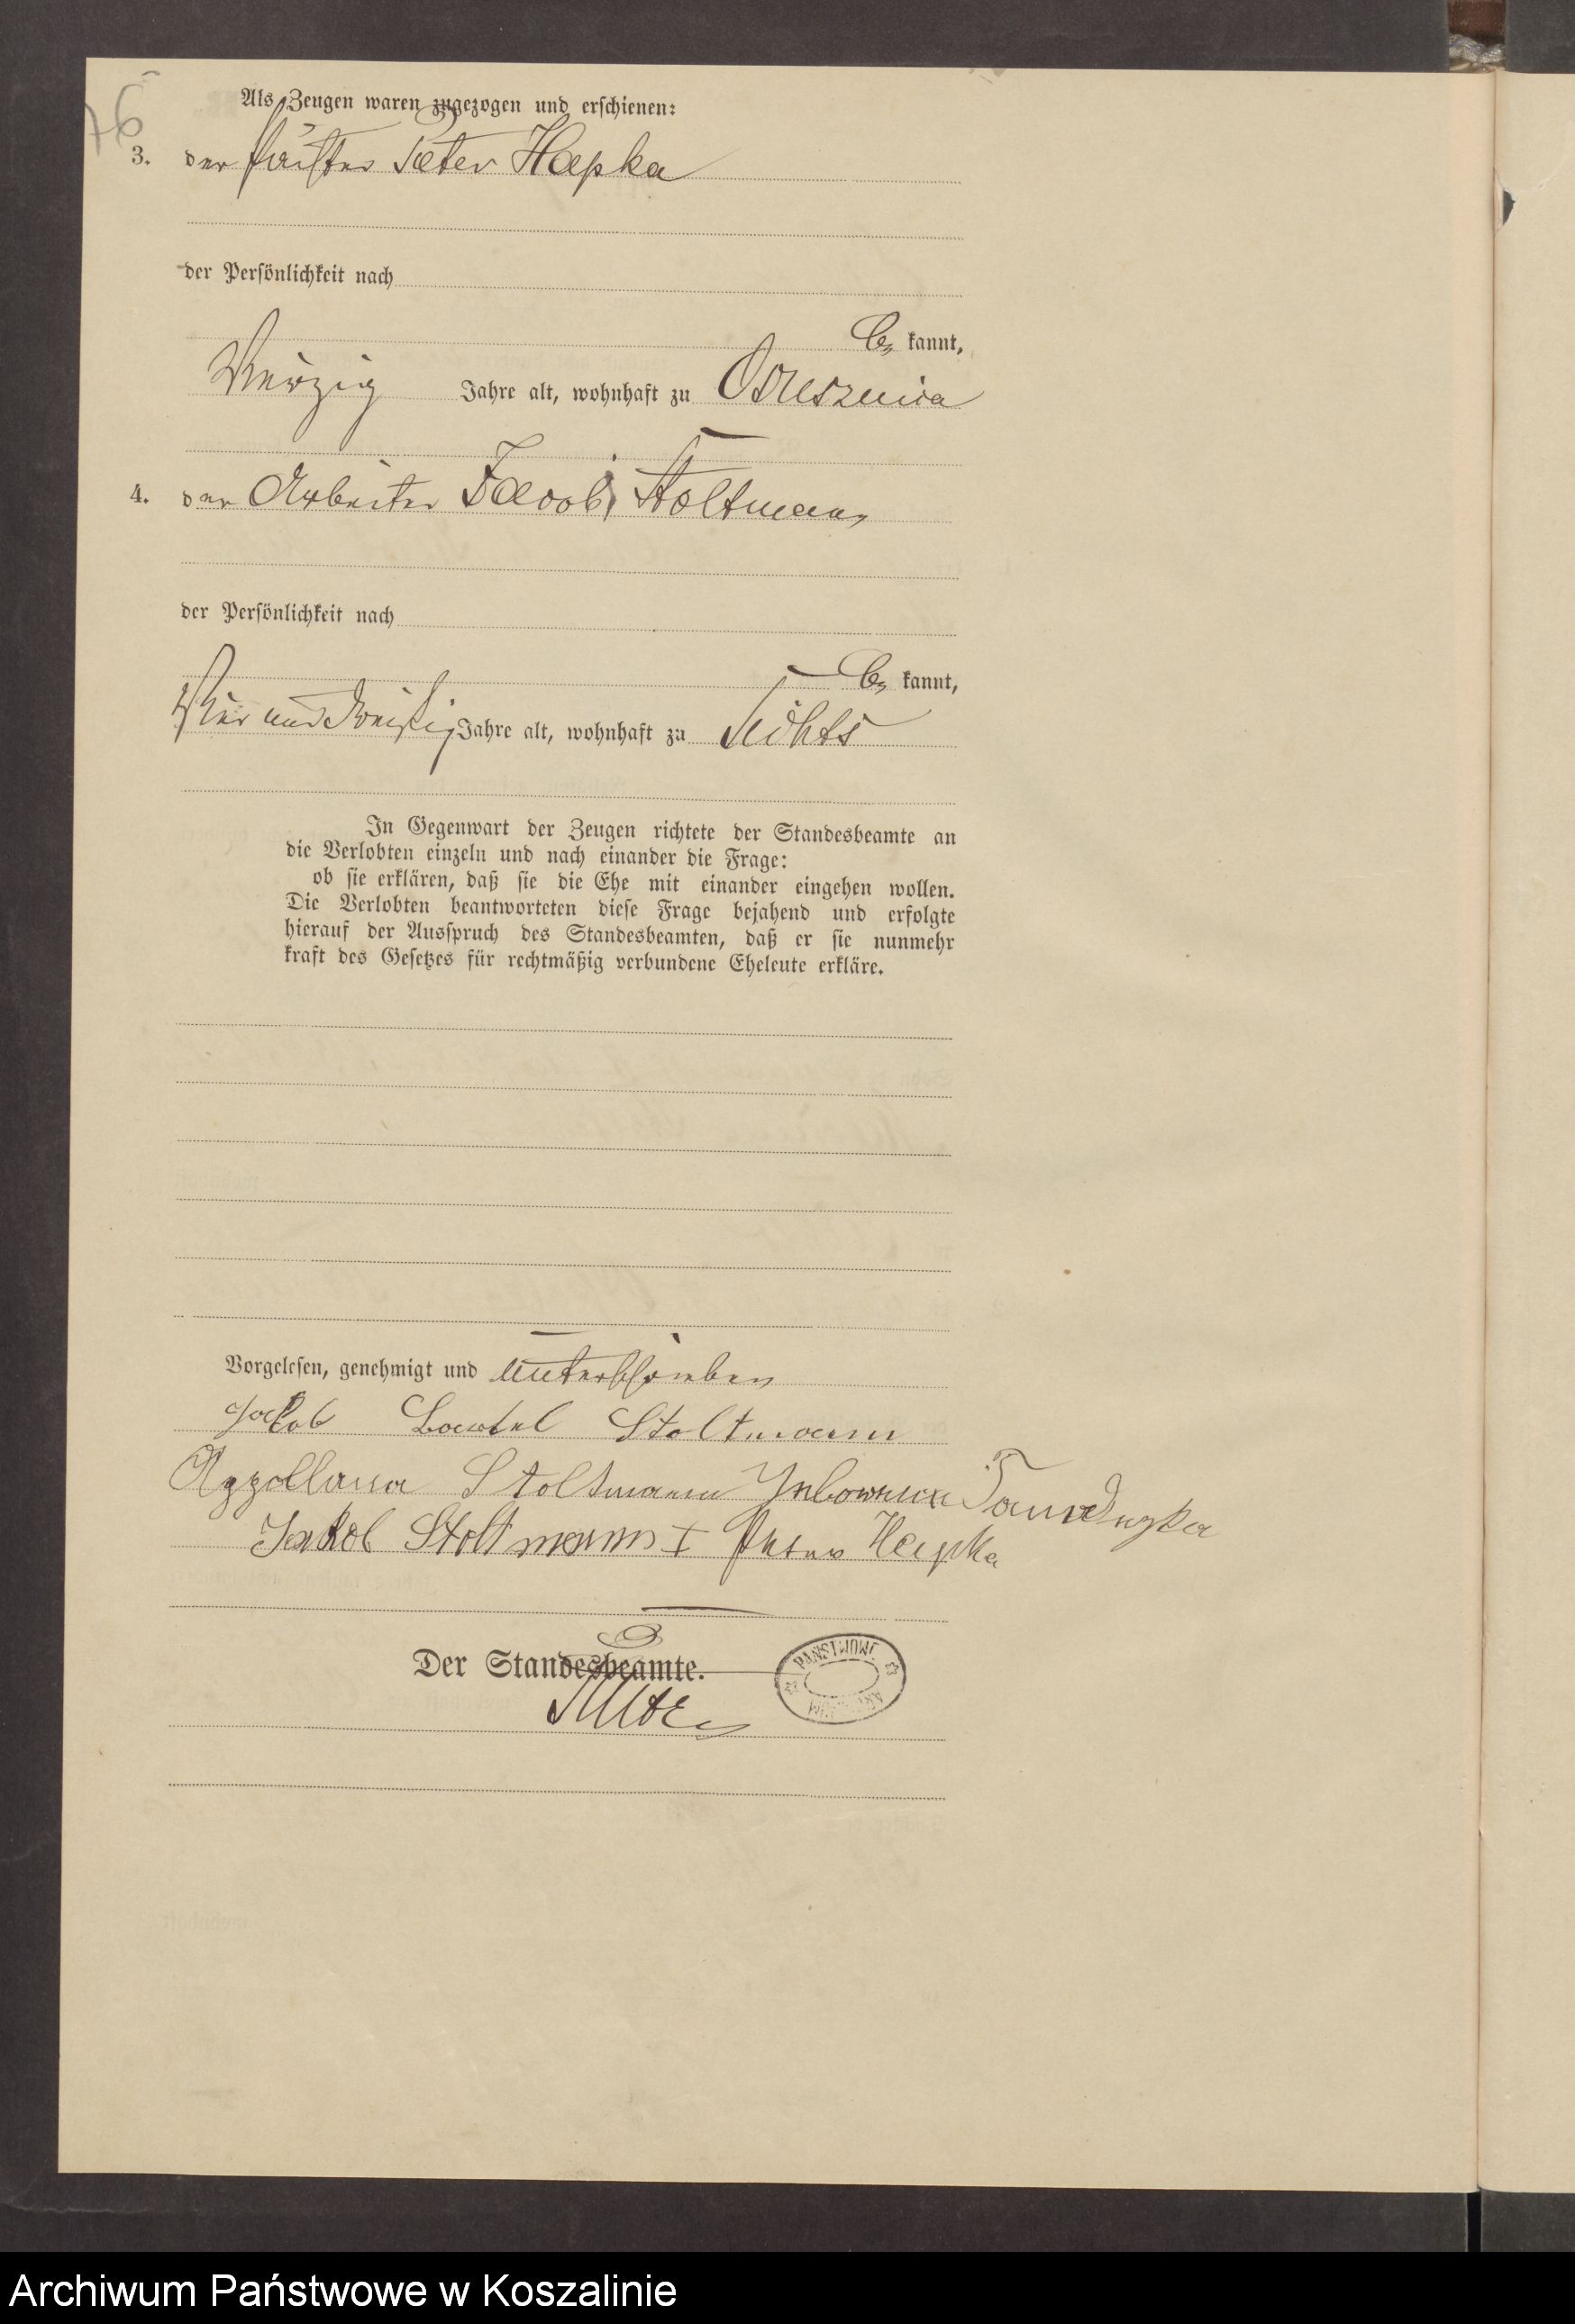 76
Als Zeugen waren zugezogen und erschienen:
3. der Peter Hapka
der Persönlichkeit nach
be kannt,
Vierzig Jahre alt, wohnhaft zu Ossuszniza
4. der Arbeiter Jacob Stoltmann
der Persönlichkeit nach
be kannt,
Vier und dreißig Jahre alt, wohnhaft zu
In Gegenwart der Zeugen richtete der Standesbeamte an
die Verlobten einzeln und nach einander die Frage:
ob sie erklären, daß sie die Ehe mit einander eingehen wollen.
Die Verlobten beantworteten diese Frage bejahend und erfolgte
hierauf der Ausspruch des Standesbeamten, daß er sie nunmehr
kraft des Gesetzes für rechtmäßig verbundene Eheleute erkläre.
Vorgelesen, genehmigt und unterschrieben
Jacob Stoltmann
Appollana Stoltmann
Jakob Stoltmann I Peter Hapka
Der Standesbeamte.
PAŃSTWOWE
Archiwum Państwowe w Koszalinie